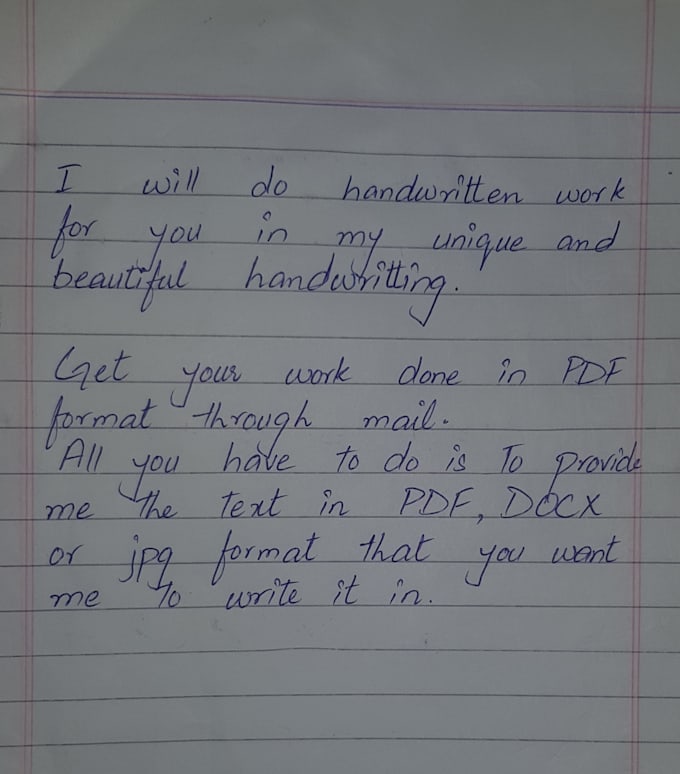 I will do handwritten work
for you in my unique and
beautiful handwritting.
Get your work done in PDF
format through mail.
All you have to do is To provide
me the text in PDF, DOCX
or jpg format that you want
me to write it in.